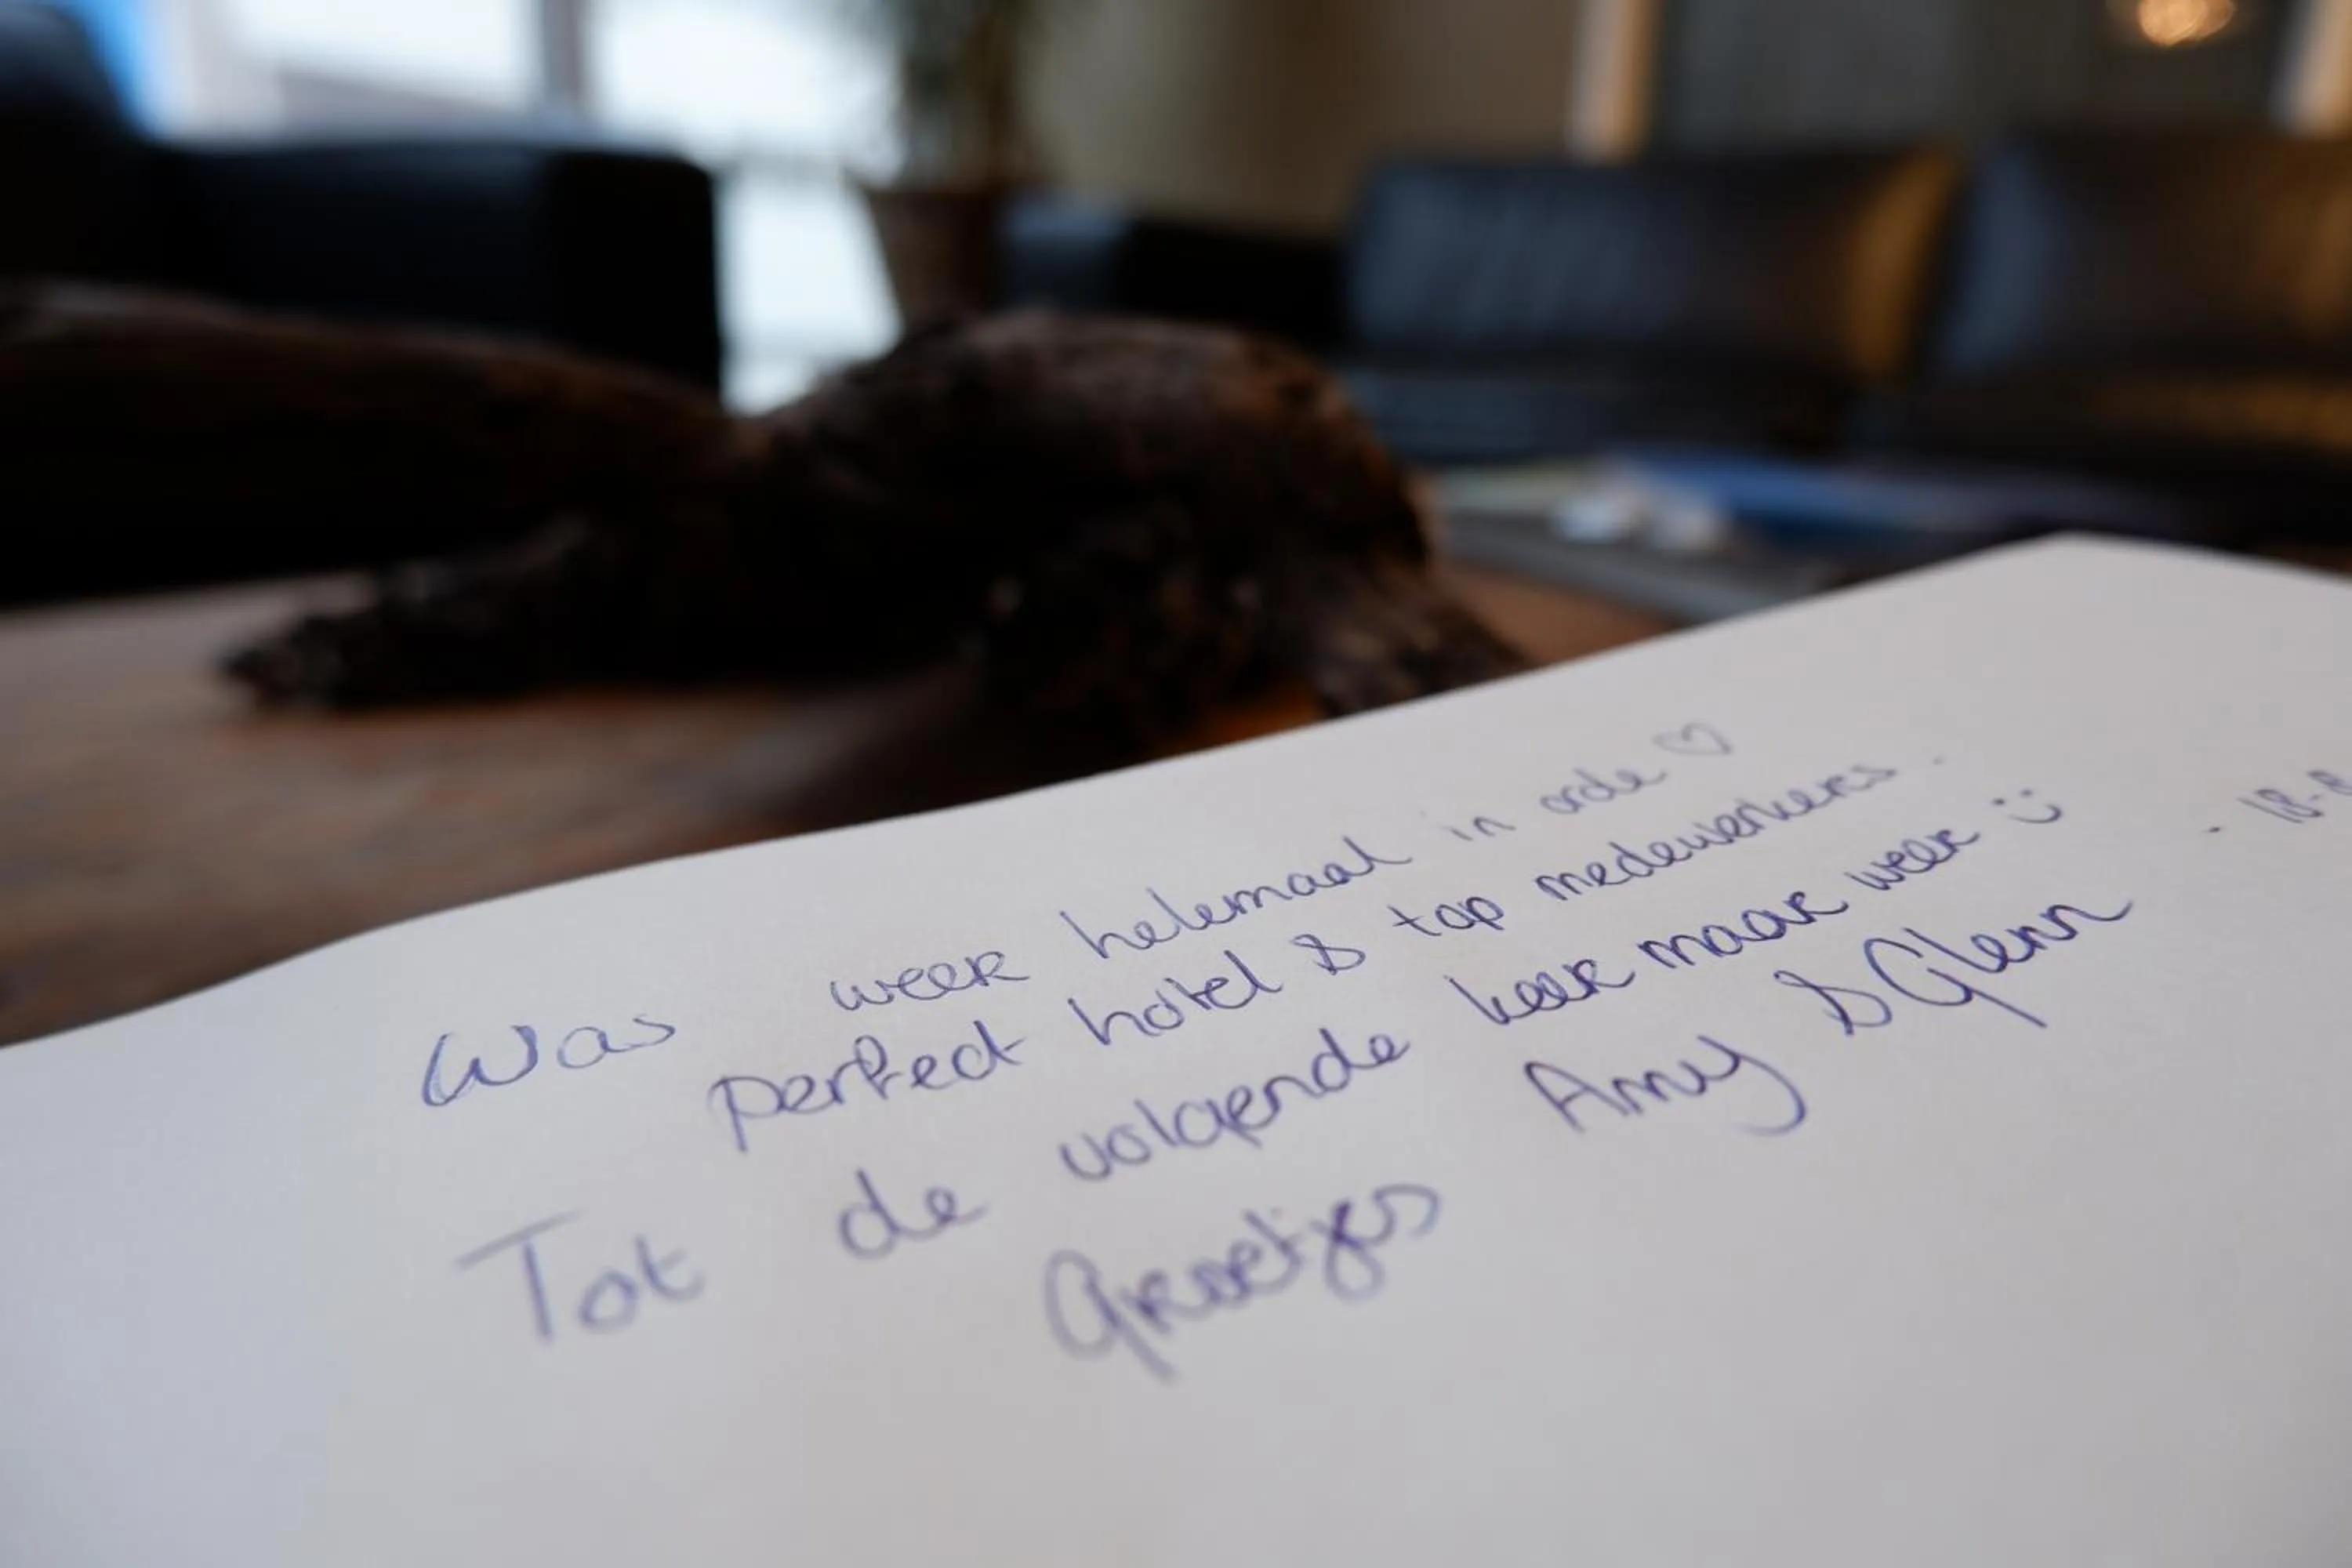 Was weer helemaal in orde ♡
perfect hotel & top medewerkers.
Tot de volgende keer maar weer :)
Groetjes Amy & Glenn
- 18-8